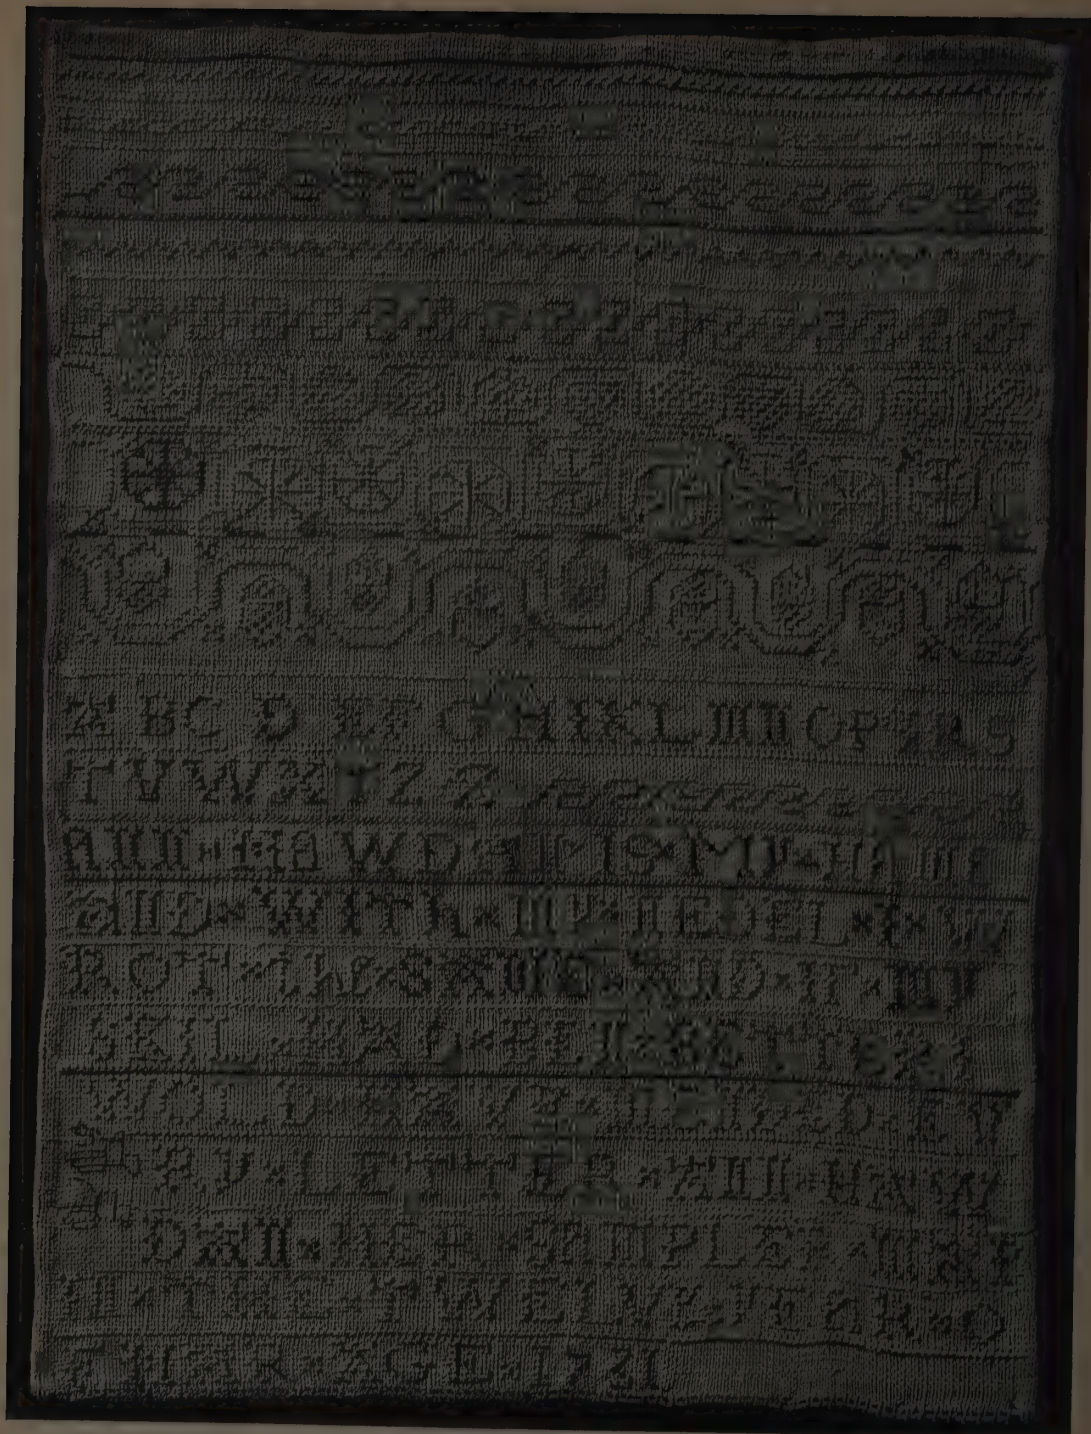 A B C D E F G H I K L M N O P Q R S
T V W X Y Z
ANN HAWDAN IS MY NAME
AND WITH MY NEDEL I W
ROT THE SAME AND IF MY
SKIL HAD BEEN
MENDED EV
ERY LETTER ANN HAW
DAN HER SAMPLER
IN THE TWELV YEAR O
F HAR AGE 1721